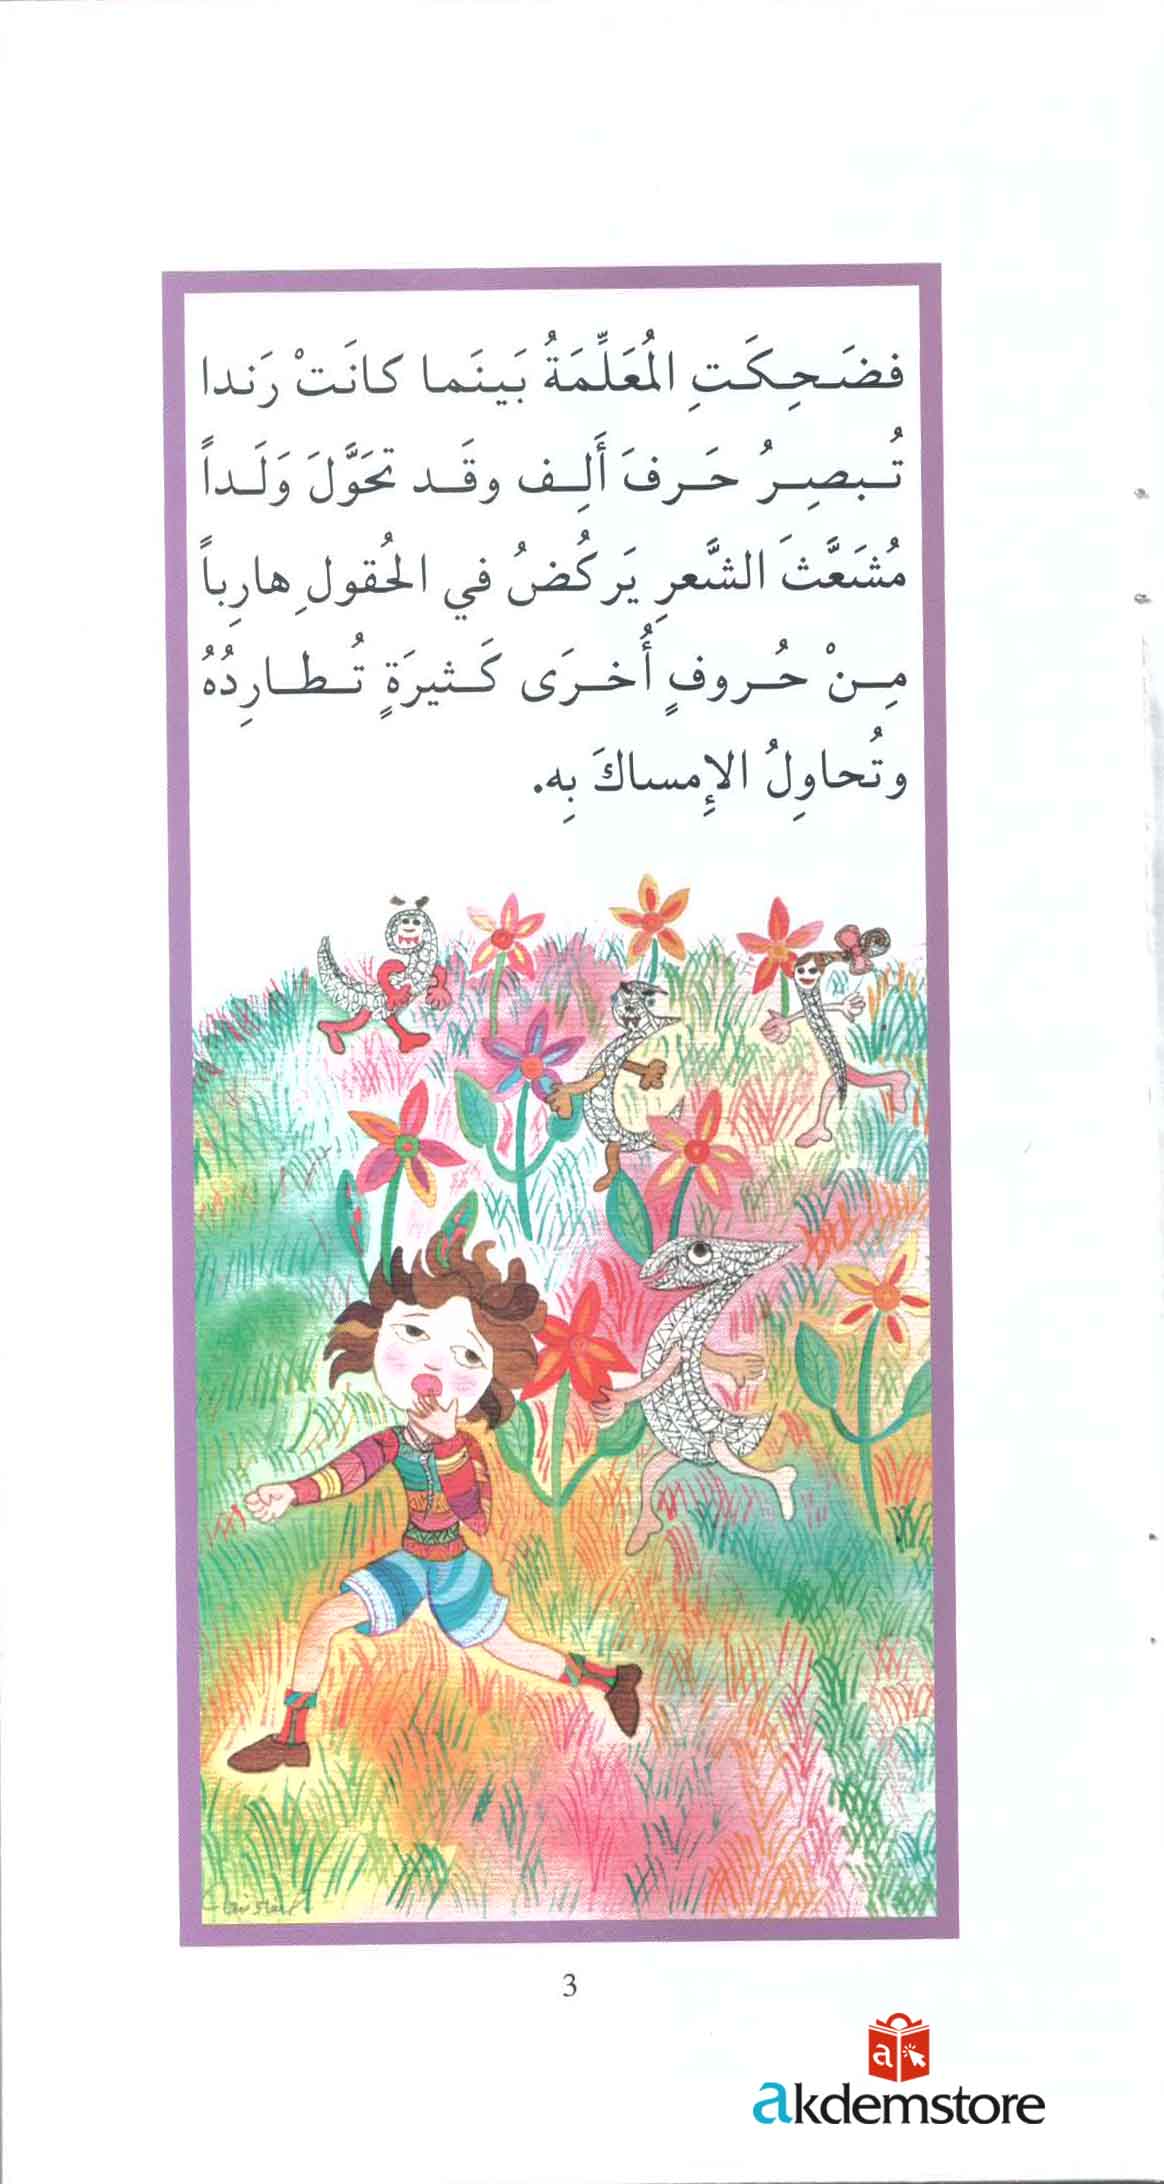 فضَحِكَتِ المُعَلِّمَةُ بَينَما كانَتْ رَندا
تُبصِرُ حَرفَ أَلِف وقَد تحَوَّلَ وَلَداً
مُشَعَّثَ الشَّعرِ يَركُضُ في الحُقولِ هارِباً
مِنْ حُروفٍ أُخرَى كَثيرَةٍ تُطارِدُهُ
وتُحاوِلُ الإِمساكَ بِه.
3
a
akdemstore